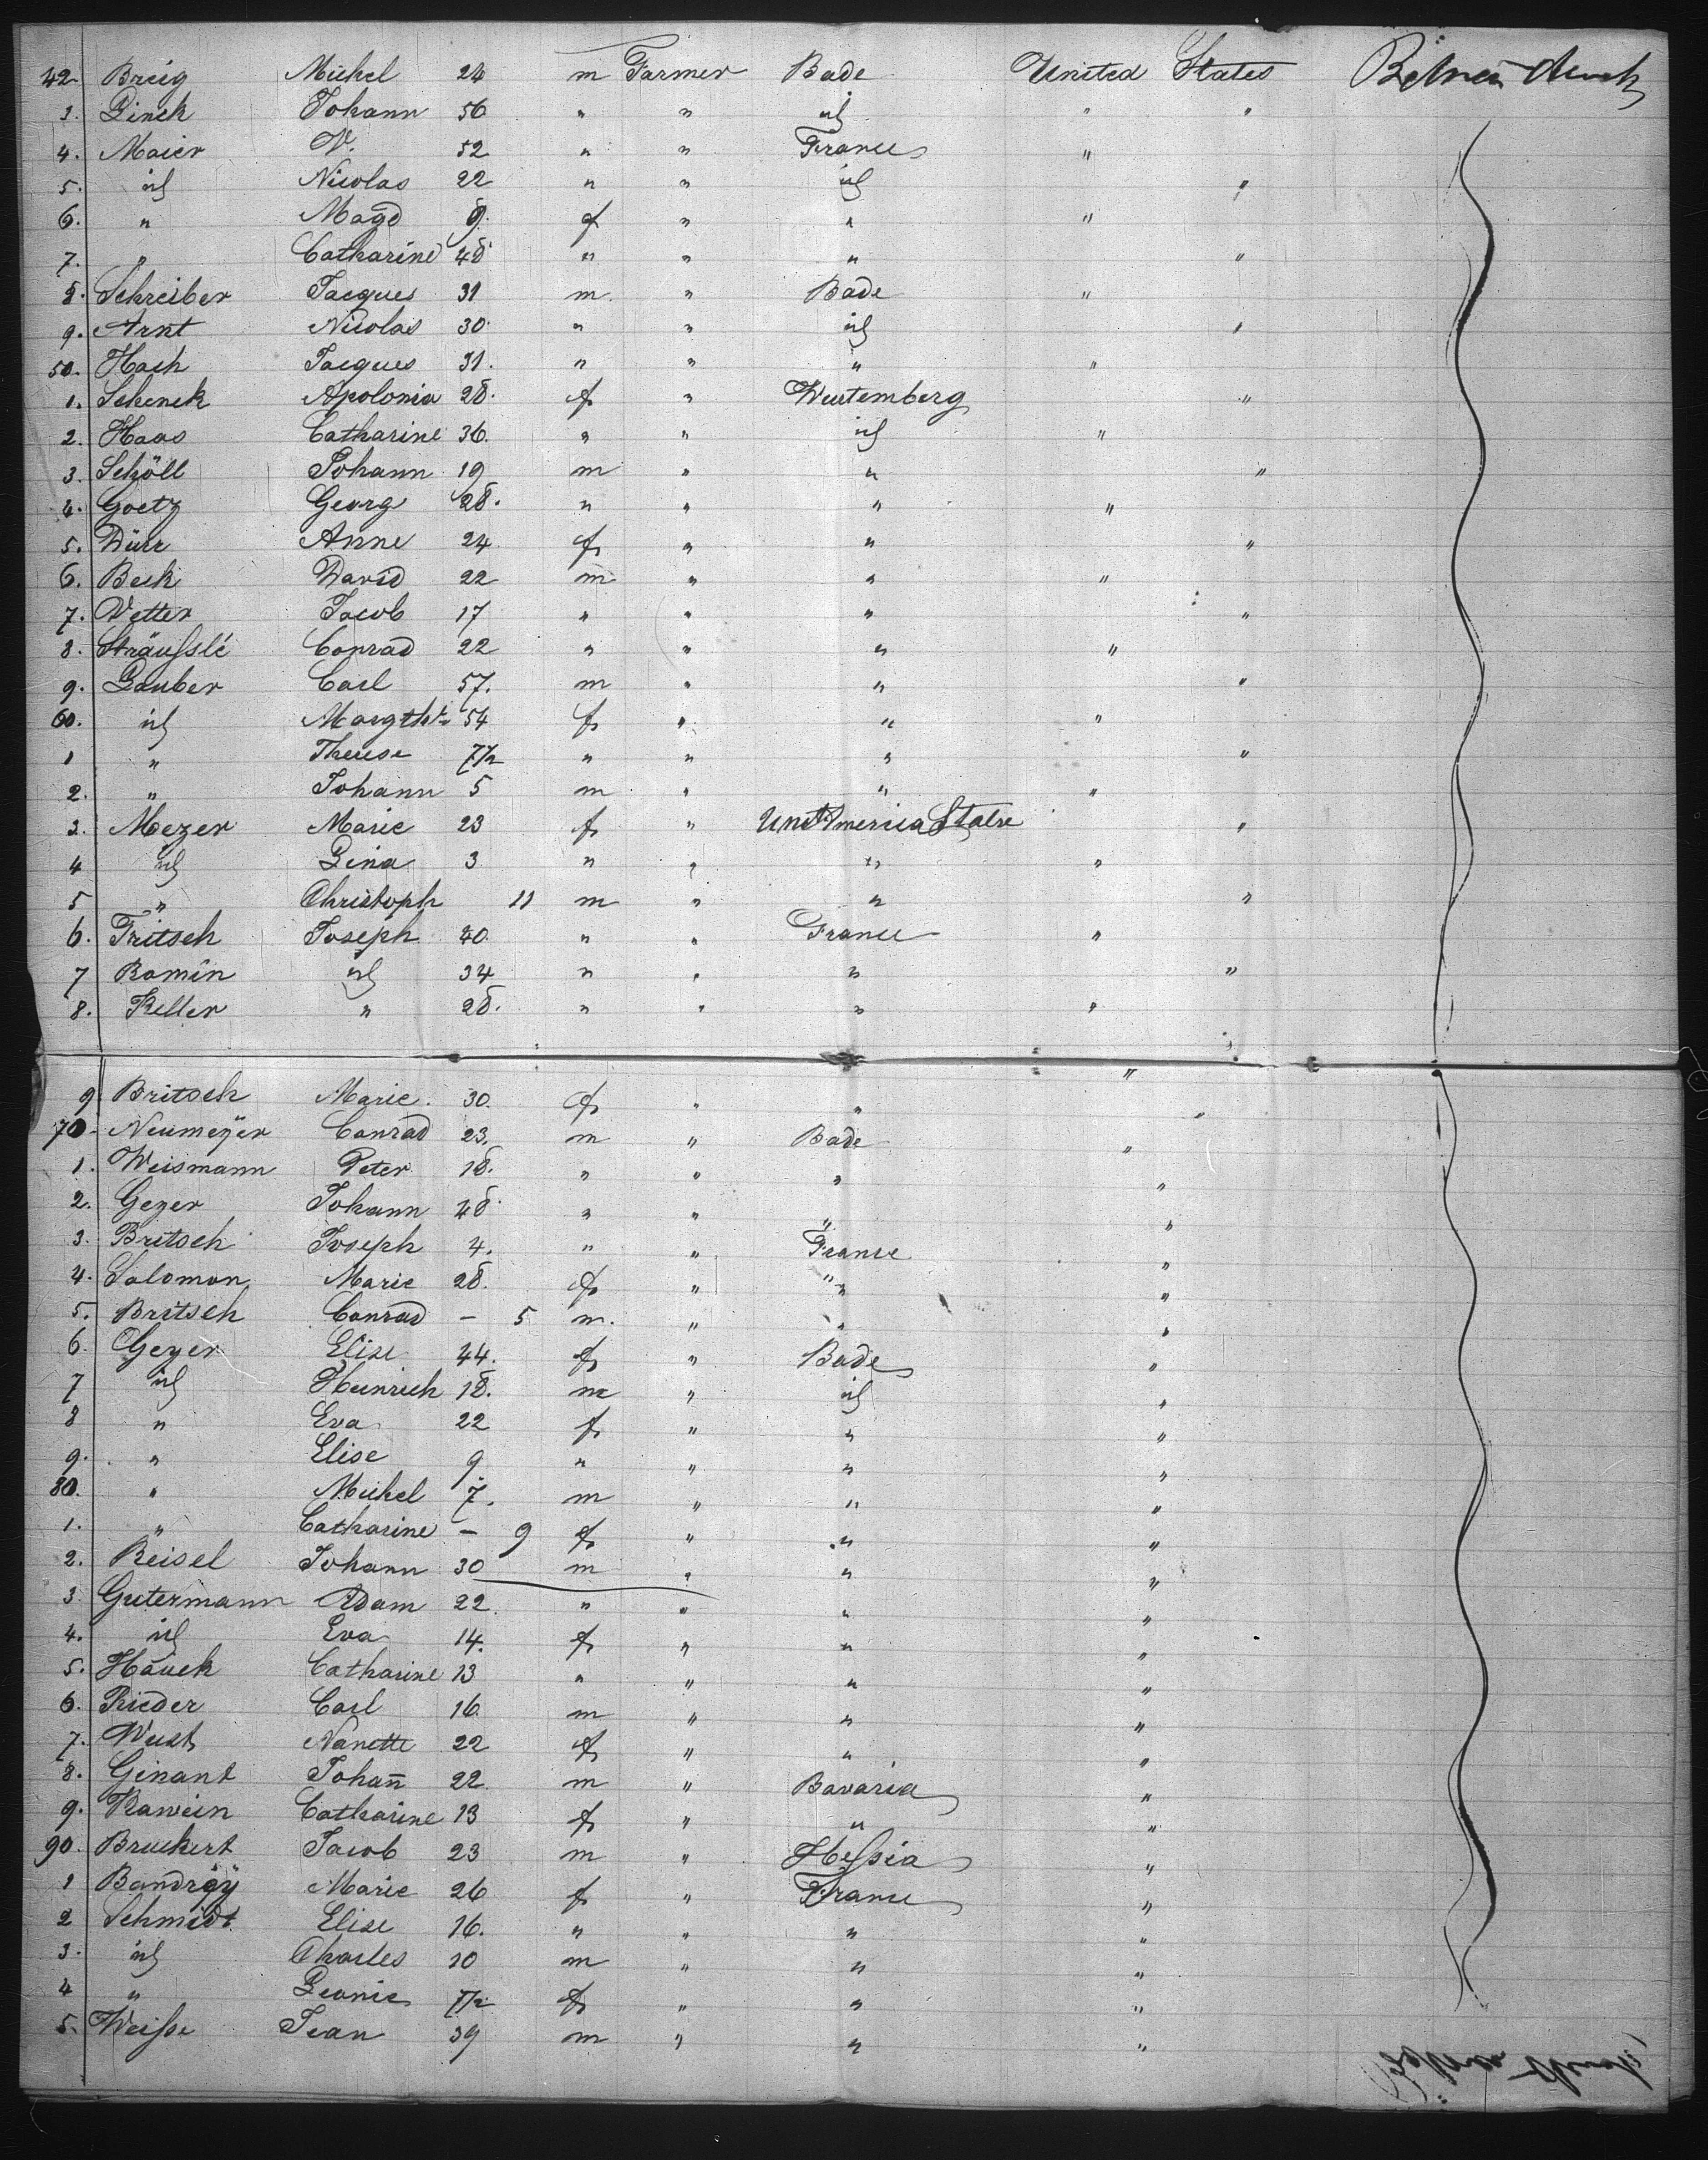 42. Breig Michel 24 m Farmer Bade United States Between deck
3. Linck Johann 56 " " id " "
4. Maier N. 52 " " France "
5. id Nicolas 22 " " id "
6. " Magd 9. f " " "
7. " Catharine 48 " " " "
8. Schreiber Jacques 31 m. " Bade "
9. Arnt Nicolas 30. " " id "
50. Hach Jacques 31. " " " "
1. Schenck Apolonia 28. f " Wurtemberg "
2. Haas Catharine 36. " " id "
3. Schöll Johann 19 m " " "
4. Goetz Georg 28. " " " "
5. Dürr Anne 24 f " " "
6. Beck David 22 m " " "
7. Vetter Jacob 17 " " " "
8. Sträusslé Conrad 22 " " " "
9. Lauber Carl 57. m " " "
60. id Margthe 54 f " " "
1 " Therese 7½ " " " "
2. " Johann 5 m " " "
3. Mezer Marie 23 f " Unit America State "
4 id Lina 3 " " " "
5 " Christoph 11 m " " "
6. Fritsch Joseph 40. " " France "
7 Romin id 34 " " " "
8. Keller " 28. " " " "
"
9 Britsch Marie. 30. f " " "
70. Neumeÿer Conrad 23. m " Bade "
1. Weismann Peter 18. " " " "
2. Geyer Johann 48. " " " "
3. Britsch Joseph 4. " " France "
4. Salomon Marie 28. f " " "
5. Britsch Conrad – 5 m. " " "
6. Geyer Elise 44. f " Bade "
7 id Heinrich 18. m " id "
8 " Eva 22 f " " "
9. " Elise 9 " " " "
80. " Michel 7. m " " "
1. " Catharine – 9 f " " "
2. Reisel Johann 30 m " " "
3 Gutermann Adam 22. " " " "
4. id Eva 14. f " " "
5. Hauck Catharine 13 " " " "
6. Rieder Carl 16. m " " "
7. Wust Nanette 22 f " " "
8. Ginant Johañ 22. m " Bavaria "
9. Rawein Catharine 13 f " " "
90. Bruckert Jacob 23 m " Hessia "
1 Bandröÿ Marie 26 f " France "
2 Schmidt Elise 16. " " " "
3. id Charles 10 m " " "
4 " Leonie 7½ f " " "
5. Weisse Jean 39 m " " "